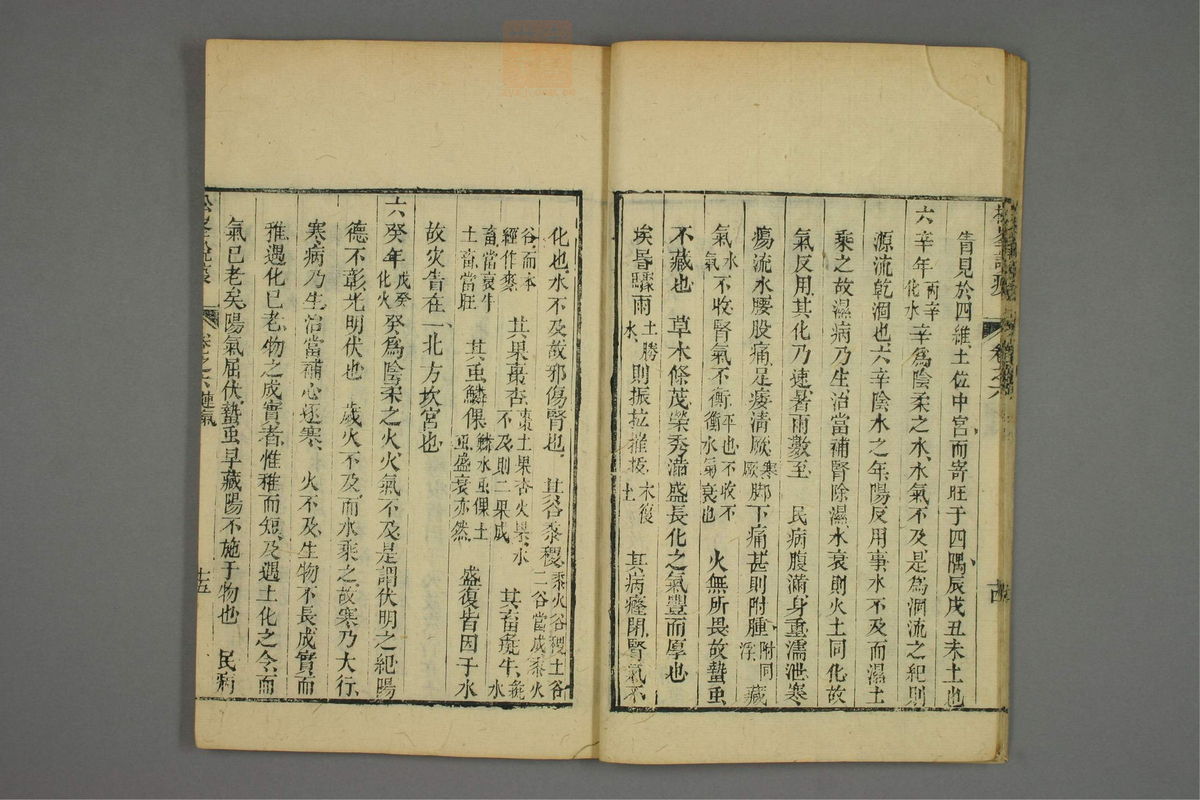 眚見於四維土位中宮而寄旺于四隅辰戌丑未土也
六辛年丙辛化水辛為陰柔之水水氣不及是為涸流之紀則
源流乾涸也六辛陰水之年陽反用事水不及而濕土
乘之故濕病乃生治當補腎除濕水衰則火土同化故
氣反用其化乃速暑雨數至 民病腹滿身重濡泄寒
瘍流水腰股痛足痿清厥寒厥脚下痛甚則附腫附同浮藏
氣水氣不收腎氣不衡衡平也不收不衡水氣衰也 火無所畏故蟄虫
不藏也 草木條茂榮秀滿盛長化之氣豐而厚也
埃昬驟雨土勝水則振拉摧拔木復土 其病癃閉腎氣不
化也水不及故邪傷腎也 其谷黍稷黍火谷稷土谷二谷當成黍火
谷而本經作麥 其果棗杏棗土果杏火果水不及則二果成 其畜彘牛彘水
畜當衰牛土畜當旺 其虫鱗倮鱗水虫倮土虫盛衰亦然 盛復皆因于水
故灾眚在一北方坎宮也
六癸年戊癸化火癸為陰柔之火火氣不及是謂伏明之紀陽
德不彰光明伏也 歲火不及而水乘之故寒乃大行
寒病乃生治當補心逐寒 火不及生物不長成實而
稚遇化已老物之成實者惟稚而短及遇土化之令而
氣已老矣陽氣屈伏蟄虫早藏陽不施于物也 民病
卷之六運氣
十五
卷之六